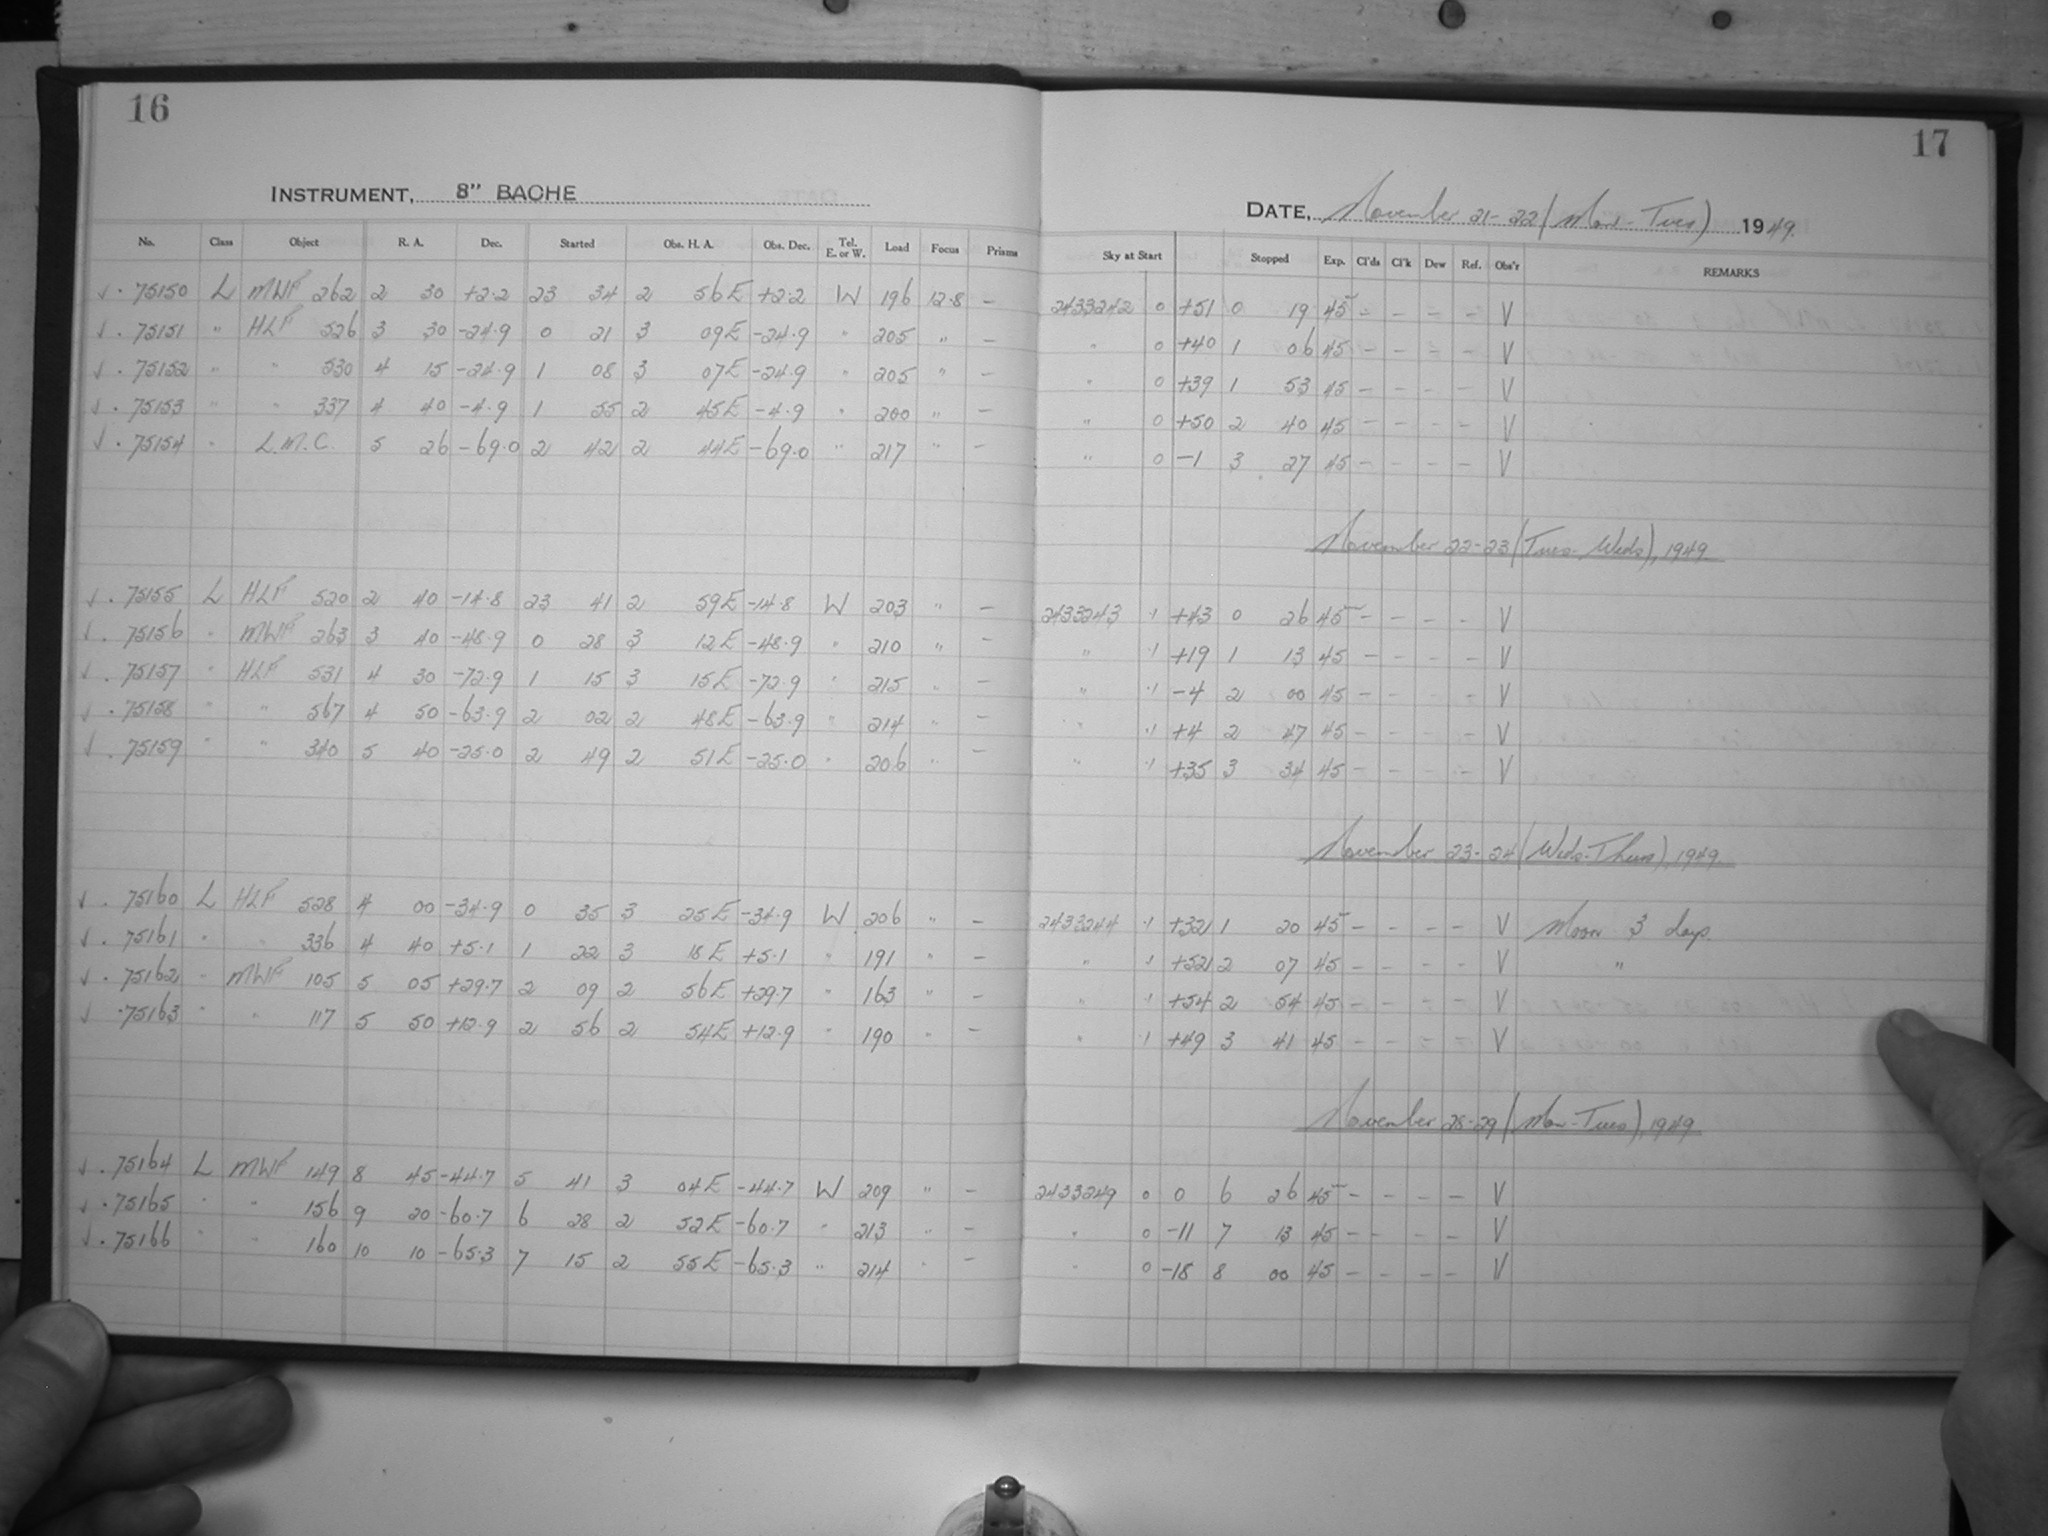 16
INSTRUMENT, 8" BACHE
No. Class Object R. A. Dec. Started Obs. H. A. Obs. Dec. Tel. E. or W. Load Focus Prisms
√ . 75150 L MWF 262 2 30 +2.2 23 34 2 56E +2.2 W 196 12.8 –
√ . 75151 " HLF 526 3 30 -24.9 0 21 3 09E -24.9 " 205 " –
√ . 75152 " " 530 4 15 -24.9 1 08 3 07E -24.9 " 205 " –
√ . 75153 " " 337 4 40 -4.9 1 55 2 45E -4.9 " 200 " –
√ . 75154 " L.M.C. 5 26 -69.0 2 42 2 44E -69.0 " 217 " –
√ . 75155 L HLF 520 2 40 -14.8 23 41 2 59E -14.8 W 203 " –
√ . 75156 " MWF 263 3 40 -48.9 0 28 3 12E -48.9 " 210 " –
√ . 75157 " HLF 531 4 30 -72.9 1 15 3 15E -72.9 " 215 " –
√ . 75158 " " 567 4 50 -63.9 2 02 2 48E -63.9 " 214 " –
√ . 75159 " " 340 5 40 -25.0 2 49 2 51E -25.0 " 206 " –
√ . 75160 L HLF 528 4 00 -34.9 0 35 3 25E -34.9 W 206 " –
√ . 75161 " " 336 4 40 +5.1 1 22 3 18E +5.1 " 191 " –
√ . 75162 " MWF 105 5 05 +29.7 2 09 2 56E +29.7 " 163 " –
√ . 75163 " " 117 5 50 +12.9 2 56 2 54E +12.9 " 190 " –
√ . 75164 L MWF 149 8 45 -44.7 5 41 3 04E -44.7 W 209 " –
√ . 75165 " " 156 9 20 -60.7 6 28 2 52E -60.7 " 213 " –
√ . 75166 " " 160 10 10 -65.3 7 15 2 55E -65.3 " 214 " –
17
DATE, November 21-22 (Mon-Tues) 1949.
Sky at Start Stopped Exp. Cl'ds Cl'k Dew Ref. Obs'r REMARKS
2433242 0 +51 0 19 45 – – – – V
" 0 +40 1 06 45 – – – – V
" 0 +39 1 53 45 – – – – V
" 0 +50 2 40 45 – – – – V
" 0 -1 3 27 45 – – – – V
November 22-23 (Tues-Weds), 1949
2433243 .1 +43 0 26 45 – – – – V
" .1 +19 1 13 45 – – – – V
" .1 -4 2 00 45 – – – – V
" .1 +4 2 47 45 – – – – V
" .1 +35 3 34 45 – – – – V
November 23-24 (Weds-Thurs), 1949
2433244 .1 +32 1 20 45 – – – – V Moon 3 days.
" .1 +52 2 07 45 – – – – V "
" .1 +54 2 54 45 – – – – V
" .1 +49 3 41 45 – – – – V
November 28-29 (Mon-Tues), 1949
2433249 0 0 6 26 45 – – – – V
" 0 -11 7 13 45 – – – – V
" 0 -18 8 00 45 – – – – V